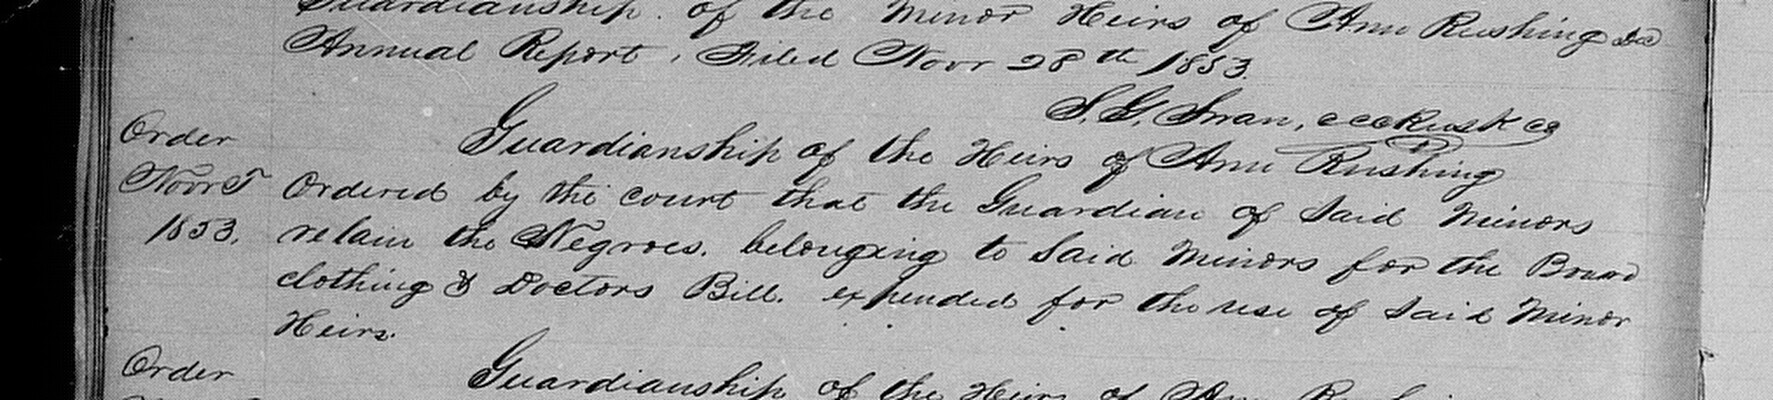 Guardianship. of the Minor Heirs of Ann Rushing Decd
Annual Report, Filed Novr 28th 1853.
S. G. Swan, ccc Rusk co
Order Guardianship of the Heirs of Ann Rushing
Novr T Ordered by the court that the Guardian of Said Minors
1853. retain the Negroes. belonging to Said Minors for the Board
clothing & Doctors Bill. expended for the use of Said Minor
Heirs.
Order Guardianship of the Heirs of Ann